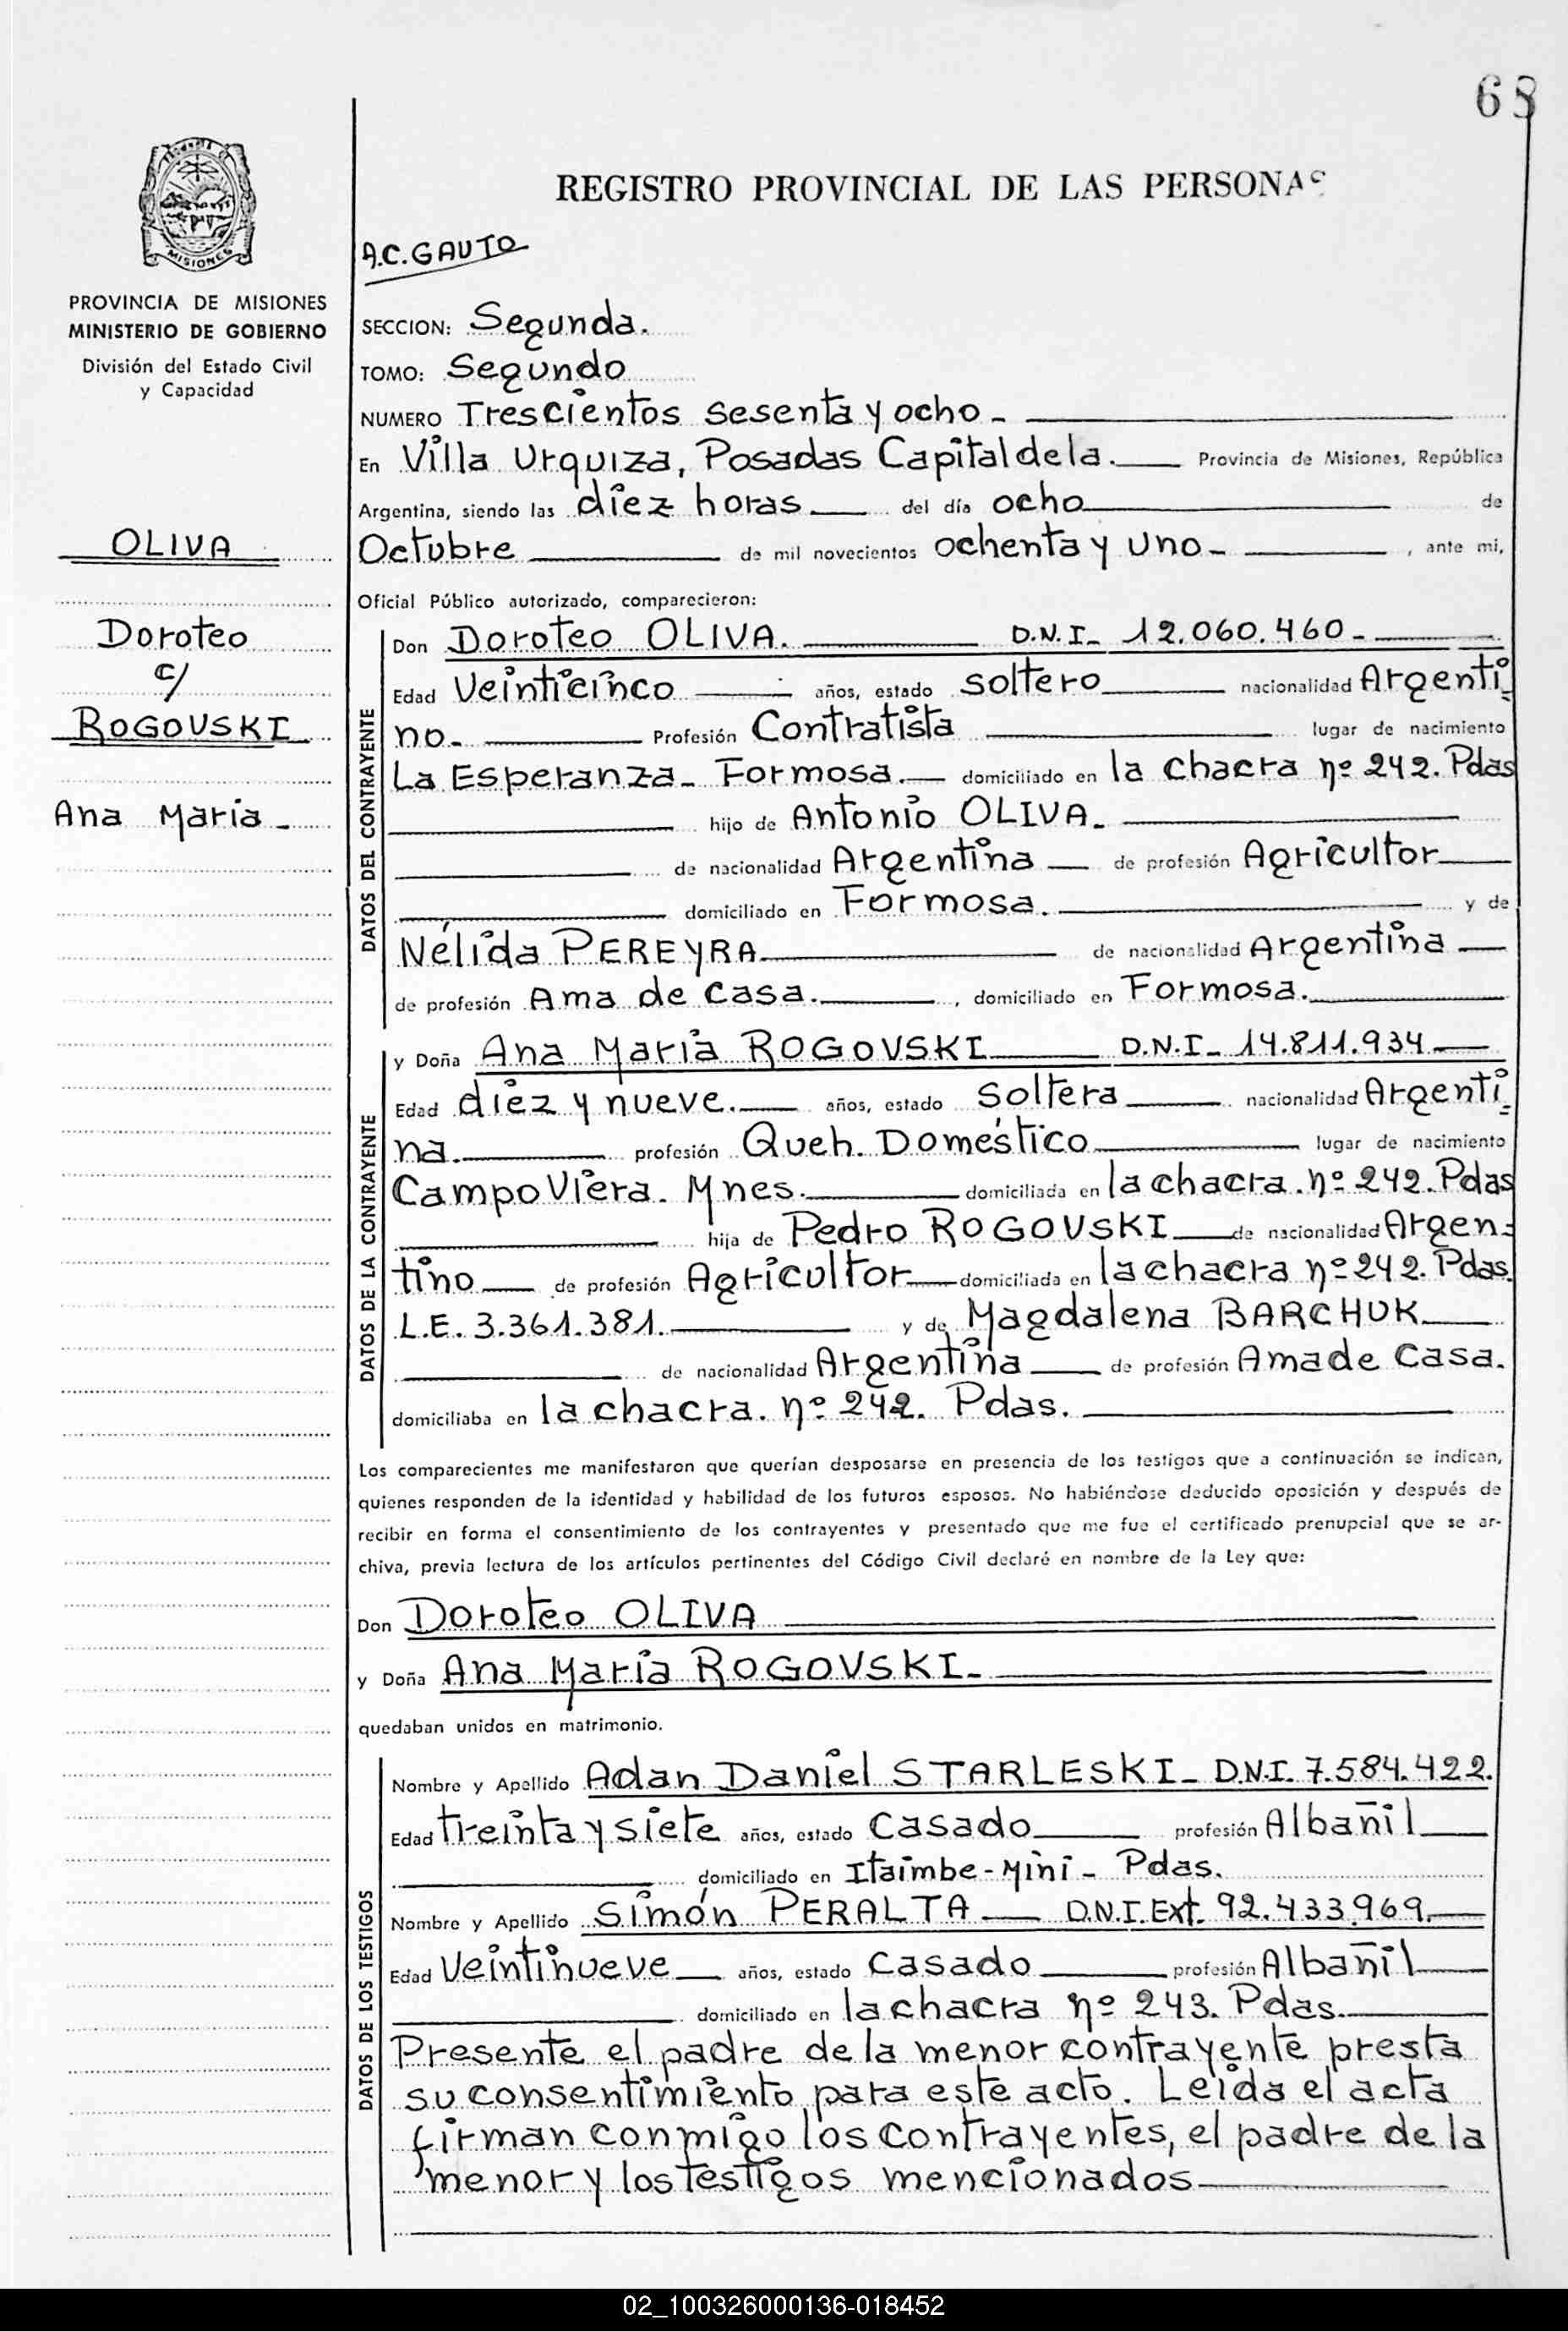 68
MISIONES
REGISTRO PROVINCIAL DE LAS PERSONAS
A.C. GAUTO
PROVINCIA DE MISIONES
MINISTERIO DE GOBIERNO
División del Estado Civil
y Capacidad
SECCION: Segunda.
TOMO: Segundo
NUMERO Trescientos sesenta y ocho -
En Villa Urquiza, Posadas Capital de la. Provincia de Misiones, República
Argentina, siendo las diez horas del día ocho de
Octubre de mil novecientos ochenta y uno - , ante mi,
Oficial Público autorizado, comparecieron:
OLIVA
Doroteo
c/
ROGOVSKI
Ana Maria -
DATOS DEL CONTRAYENTE
Don Doroteo OLIVA. D.N.I- 12.060.460-
Edad Veinticinco años, estado soltero nacionalidad Argenti
no- Profesión Contratista lugar de nacimiento
La Esperanza- Formosa. domiciliado en la chacra nº 242. Pdas
hijo de Antonio OLIVA.
de nacionalidad Argentina de profesión Agricultor
domiciliado en Formosa. y de
Nélida PEREYRA de nacionalidad Argentina
de profesión Ama de casa. , domiciliado en Formosa.
DATOS DE LA CONTRAYENTE
y Doña Ana Maria ROGOVSKI D.N.I- 14.811.934
Edad diez y nueve. años, estado Soltera nacionalidad Argenti
na. profesión Queh. Doméstico lugar de nacimiento
Campo Viera. Mnes. domiciliada en la chacra. nº 242. Pdas
hija de Pedro ROGOVSKI de nacionalidad Argen-
tino de profesión Agricultor domiciliada en la chacra nº 242. Pdas.
L.E. 3.361.381. y de Magdalena BARCHUK
de nacionalidad Argentina de profesión Ama de casa.
domiciliaba en la chacra. nº 242. Pdas.
Los comparecientes me manifestaron que querían desposarse en presencia de los testigos que a continuación se indican,
quienes responden de la identidad y habilidad de los futuros esposos. No habiéndose deducido oposición y después de
recibir en forma el consentimiento de los contrayentes y presentado que me fue el certificado prenupcial que se ar-
chiva, previa lectura de los artículos pertinentes del Código Civil declaré en nombre de la Ley que:
Don Doroteo OLIVA
y Doña Ana María ROGOVSKI-
quedaban unidos en matrimonio.
DATOS DE LOS TESTIGOS
Nombre y Apellido Adan Daniel STARLESKI- D.N.I. 7.584.422.
Edad treinta y siete años, estado Casado profesión Albañil
domiciliado en Itaimbe-Mini- Pdas.
Nombre y Apellido Simón PERALTA D.N.I.Ext. 92.433.969.
Edad Veintinueve años, estado Casado profesión Albañil
domiciliado en la chacra nº 243. Pdas.
Presente el padre de la menor contrayente presta
su consentimiento para este acto. Leida el acta
firman conmigo los contrayentes, el padre de la
menor y los testigos mencionados
02_100326000136-018452